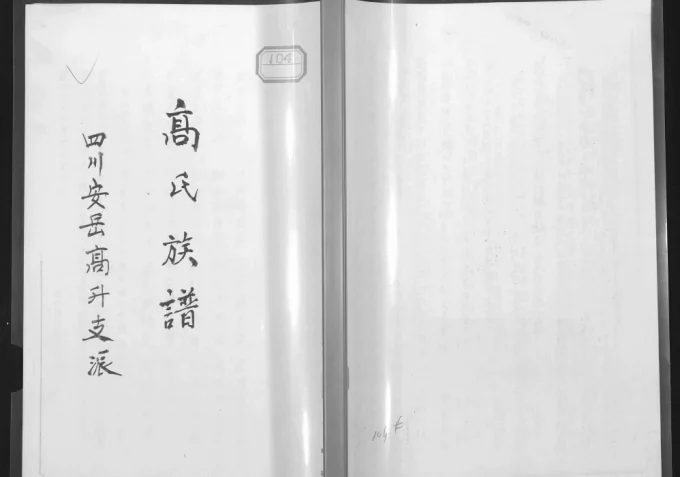 104
高氏族譜
四川安岳高升支派
104